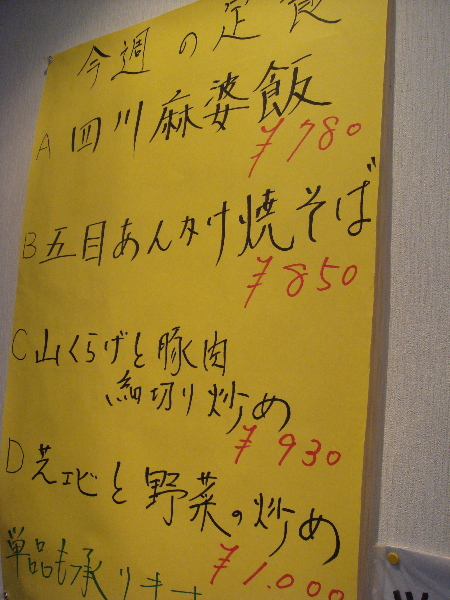 今週の定食
A 四川麻婆飯
¥780
B 五目あんかけ焼そば
¥850
C 山くらげと豚肉
細切り炒め
¥930
D 芝エビと野菜の炒め
¥1.000
単品も承ります